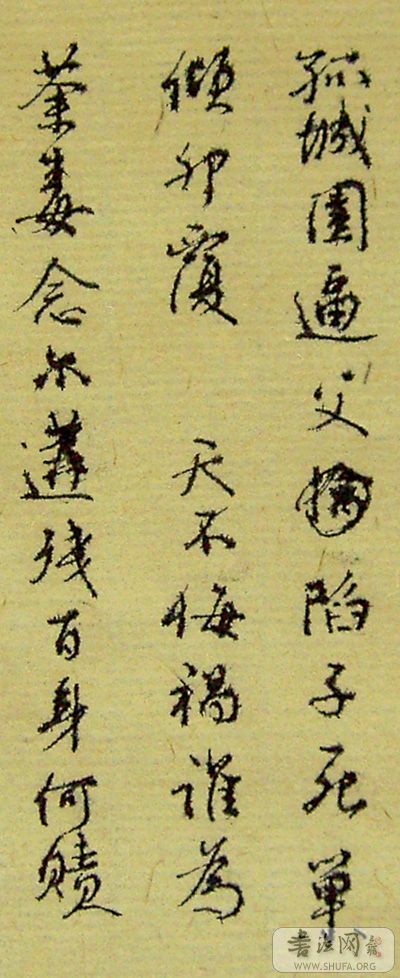 孤城圍逼父擒陷子死巢
傾卵覆 天不悔禍誰為
荼毒念尔遘殘百身何贖
書法网
WWW.SHUFA.ORG